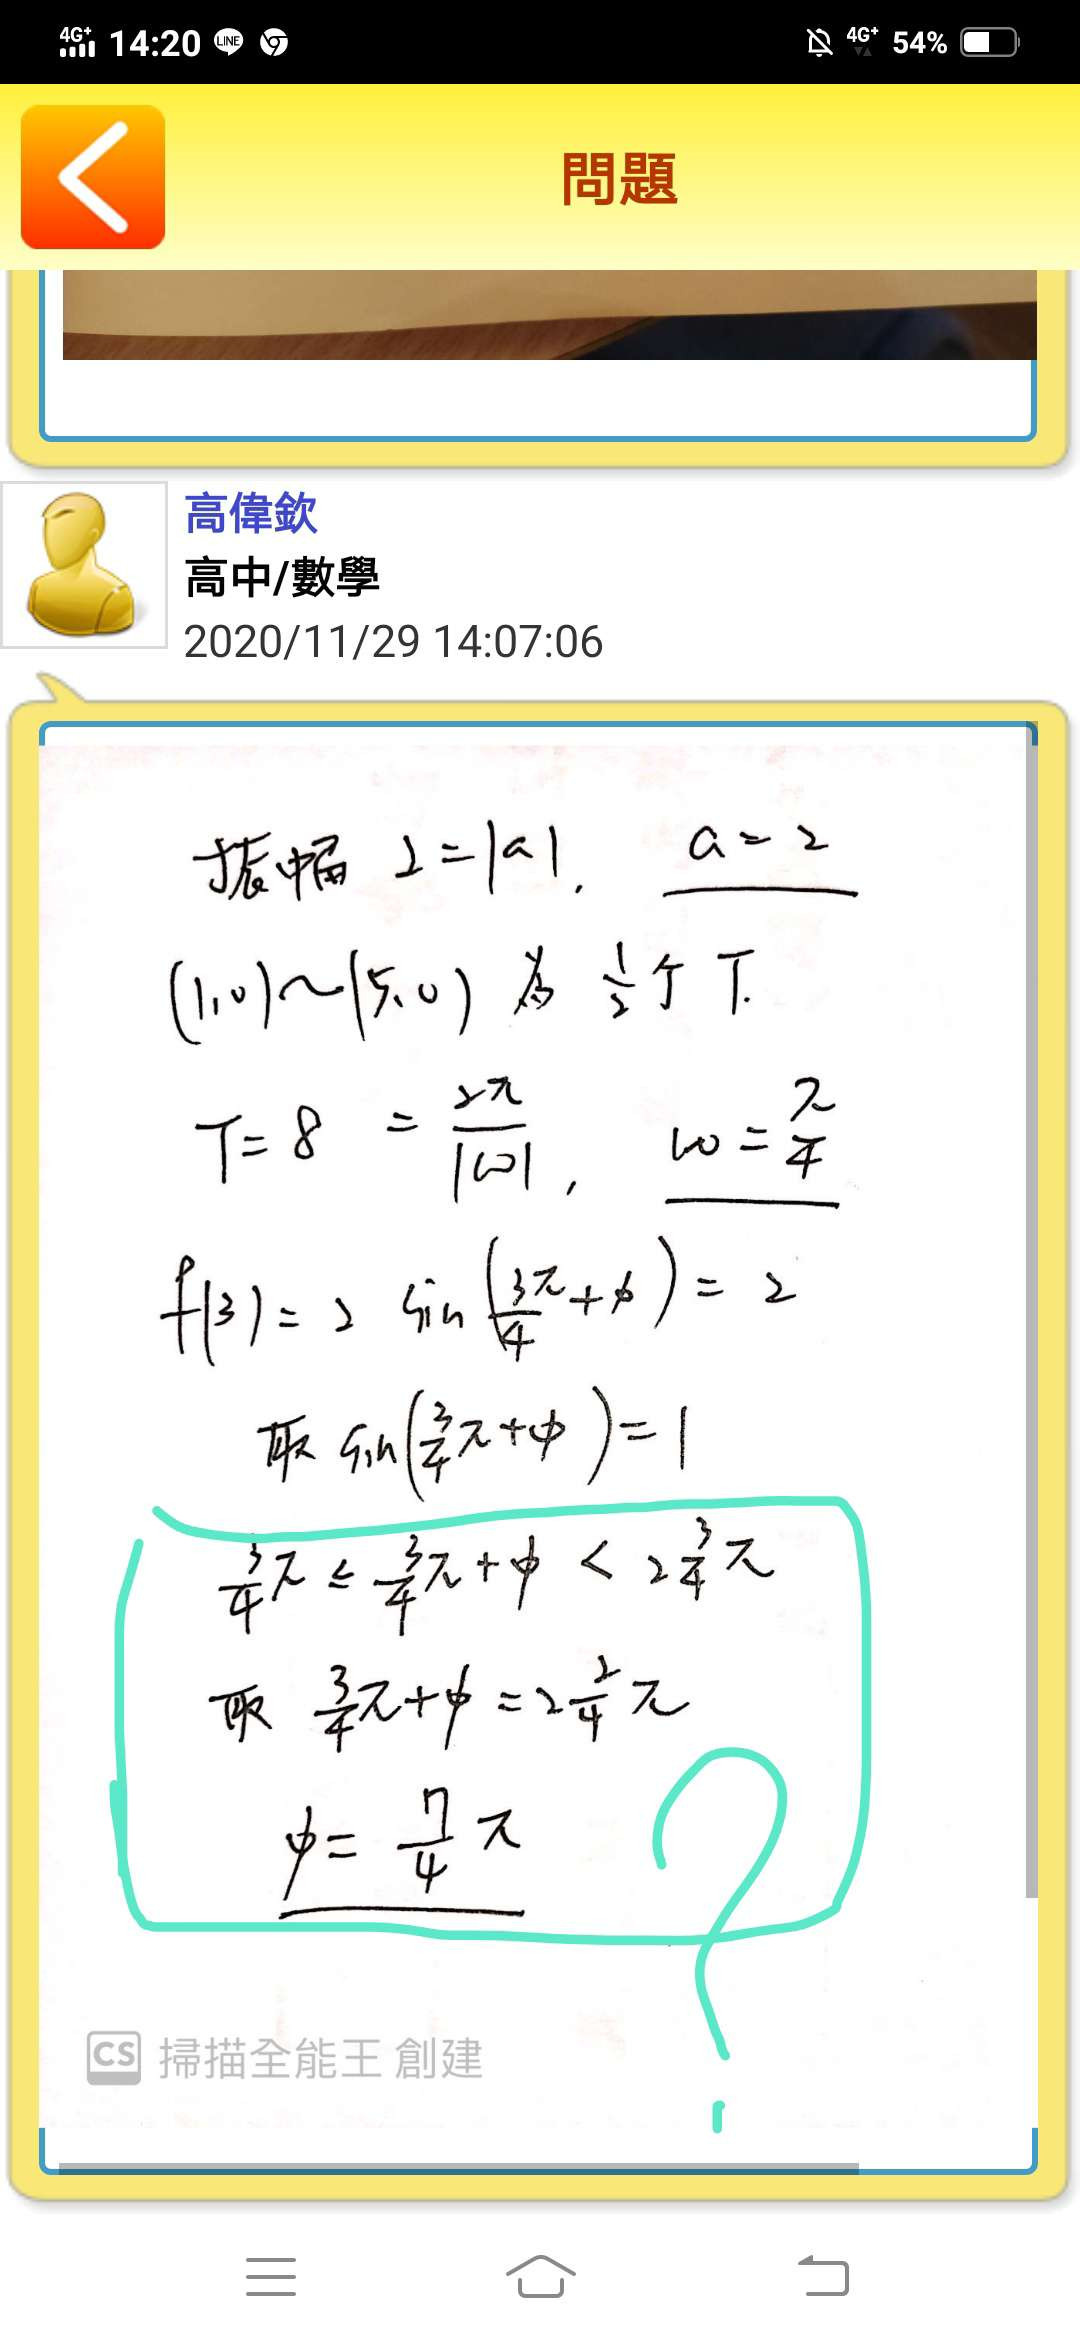 4G+ 14:20 LINE 4G+ 54%
問題
高偉欽
高中/數學
2020/11/29 14:07:06
振幅 2=|a|. a=2
(1,0)~(5,0) 為 1/2 个 T.
T=8 = 2π/|ω|, ω=π/4
f(3)=2 sin(3π/4+φ)=2
取 sin(3/4π+φ)=1
3/4π≤3/4π+φ<2 3/4π
取 3/4π+φ=2 2/4π
φ=7/4π
?
CS 掃描全能王 創建